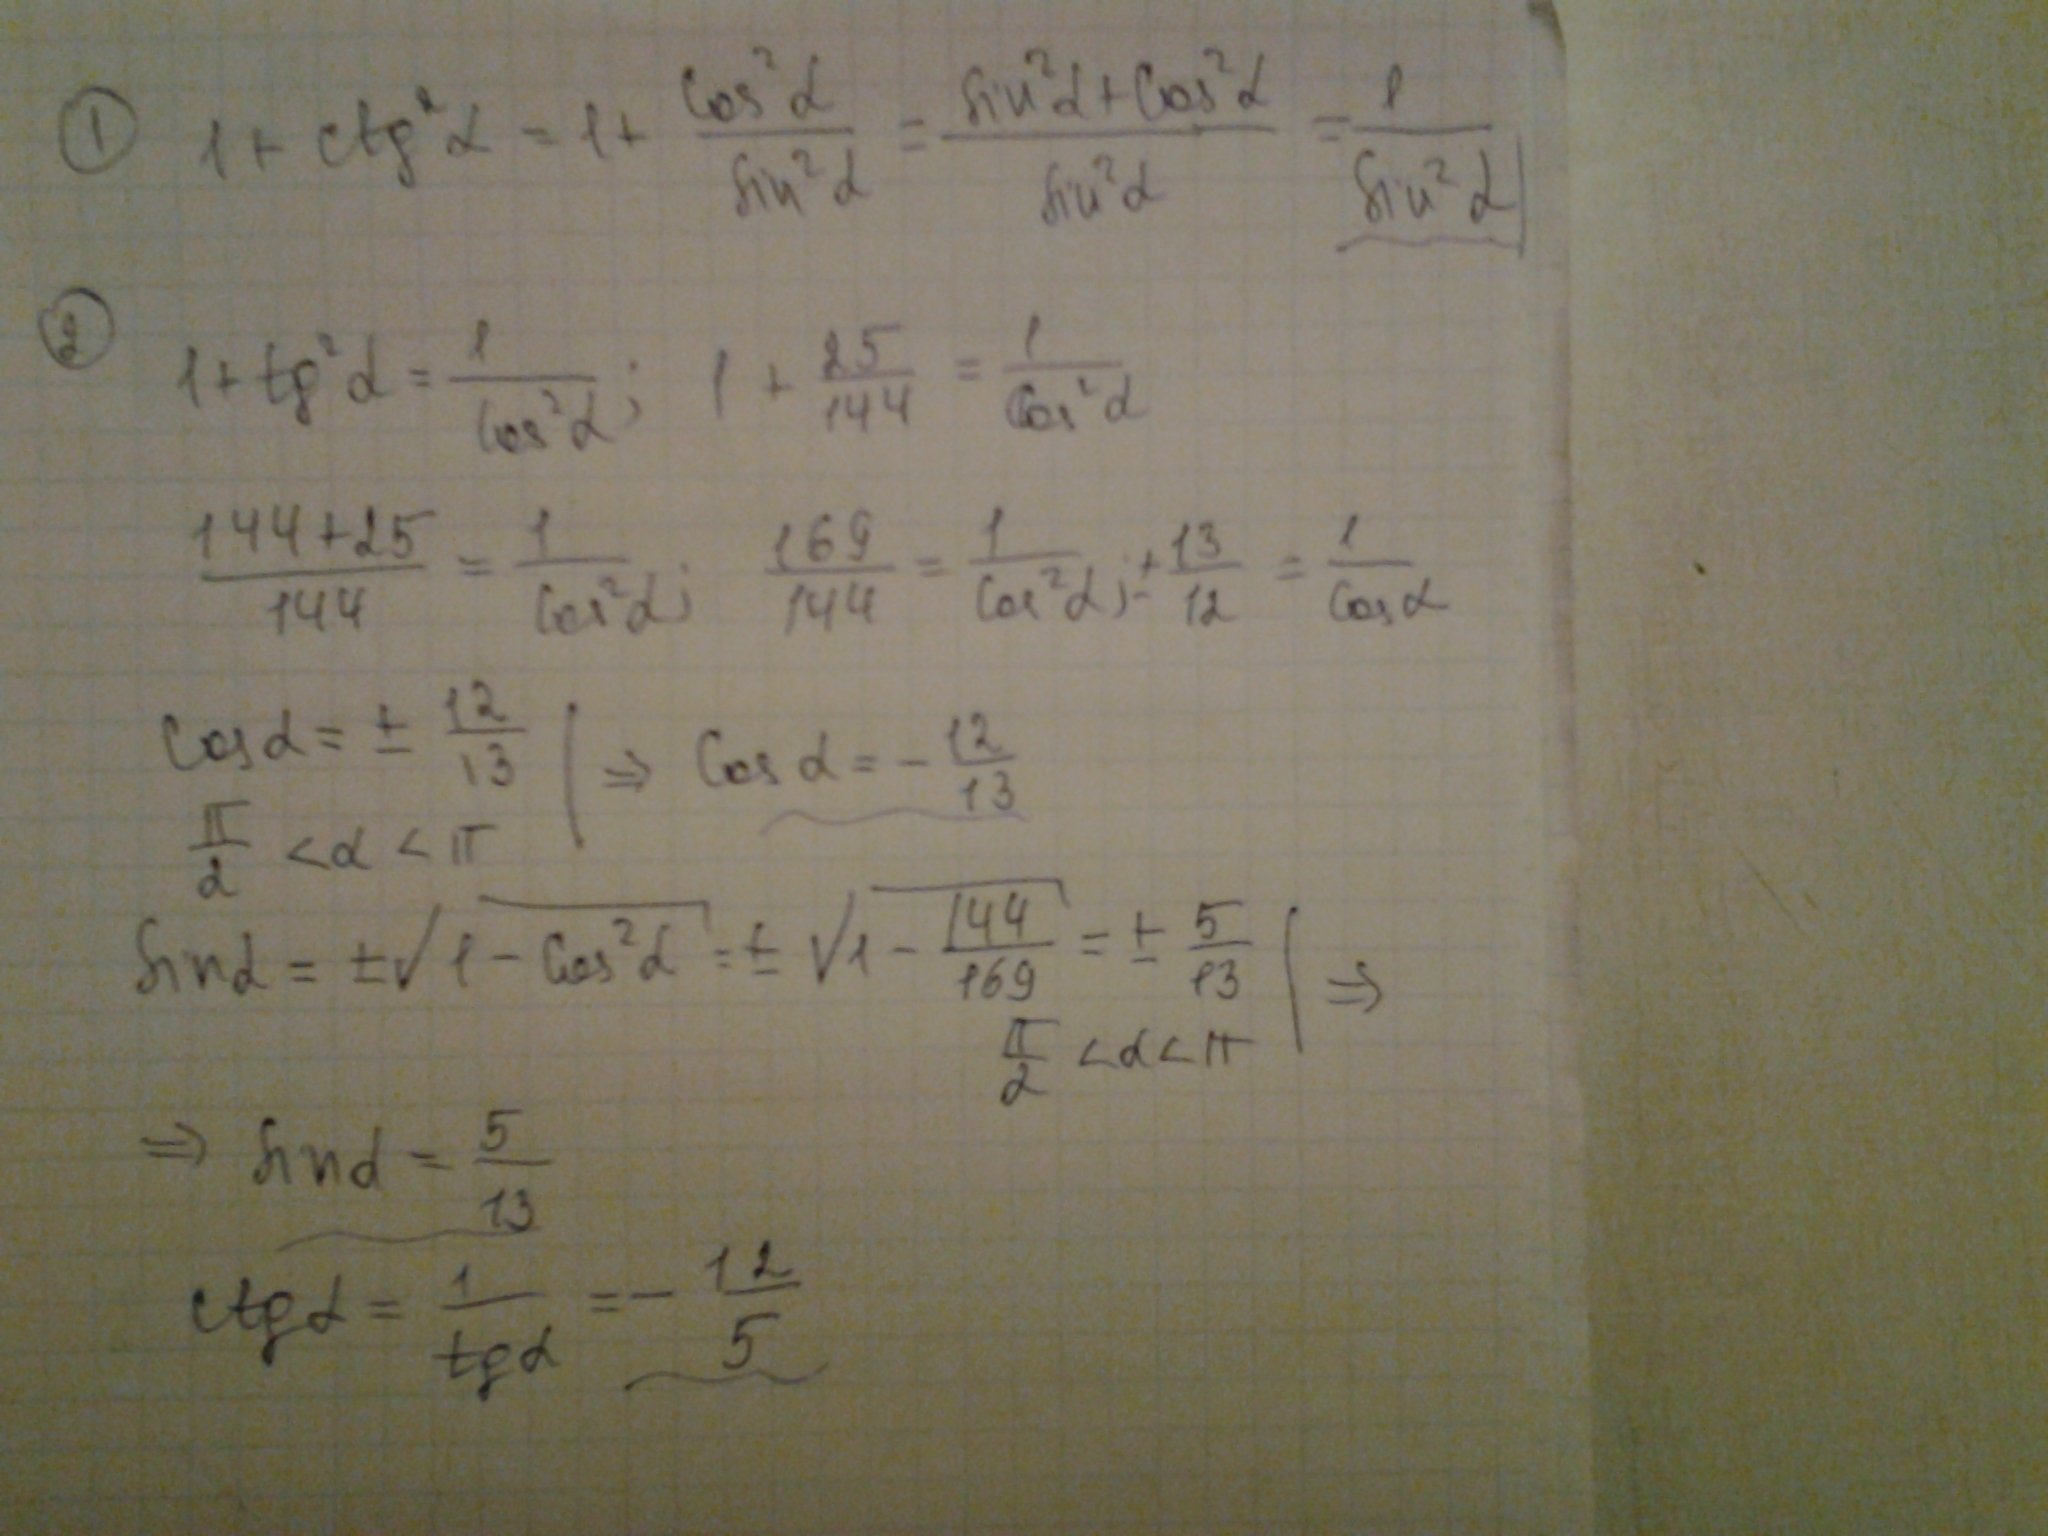 ① 1 + ctg²α = 1 + cos²α/sin²α = (sin²α + cos²α)/sin²α = 1/sin²α
② 1 + tg²α = 1/cos²α; 1 + 25/144 = 1/cos²α
(144+25)/144 = 1/cos²α; 169/144 = 1/cos²α; ± 13/12 = 1/cosα
cosα = ± 12/13 | ⇒ cosα = - 12/13
π/2 < α < π
sinα = ±√(1 - cos²α) = ± √(1 - 144/169) = ± 5/13 | ⇒
π/2 < α < π
⇒ sinα = 5/13
ctgα = 1/tgα = - 12/5